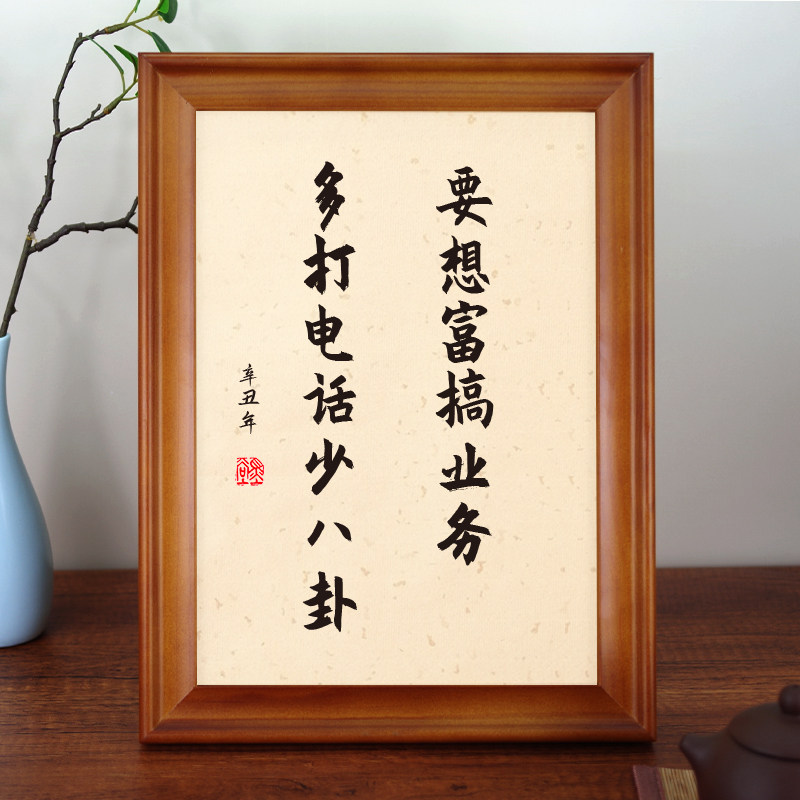 要想富搞业务
多打电话少八卦
辛丑年